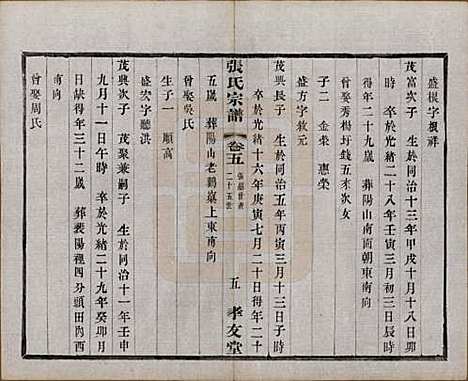 盛根字根祥
茂富次子　生於同治十三年甲戌十月十八日卯
時　卒於光緒二十八年壬寅三月初三日辰時
得年二十九歲　葬陽山南面朝東南向
曾娶秀楊圩錢五來次女
子二　金榮　惠榮
盛方字敘元
茂興長子　生於同治五年丙寅三月十三日子時
卒於光緒十六年庚寅七月二十日得年二十
張氏宗譜
卷五
二十五世
五
孝友堂
五歲　葬陽山老鶴嘉上東南向
曾娶吳氏
生子一　順高
盛安字聽洪
茂興次子　茂聚兼嗣子　生於同治十一年壬申
九月十一日午時　卒於光緒二十九年癸卯月
日缺得年三十二歲　葬裴陽裡四分頭田內酉
南向
曾娶周氏